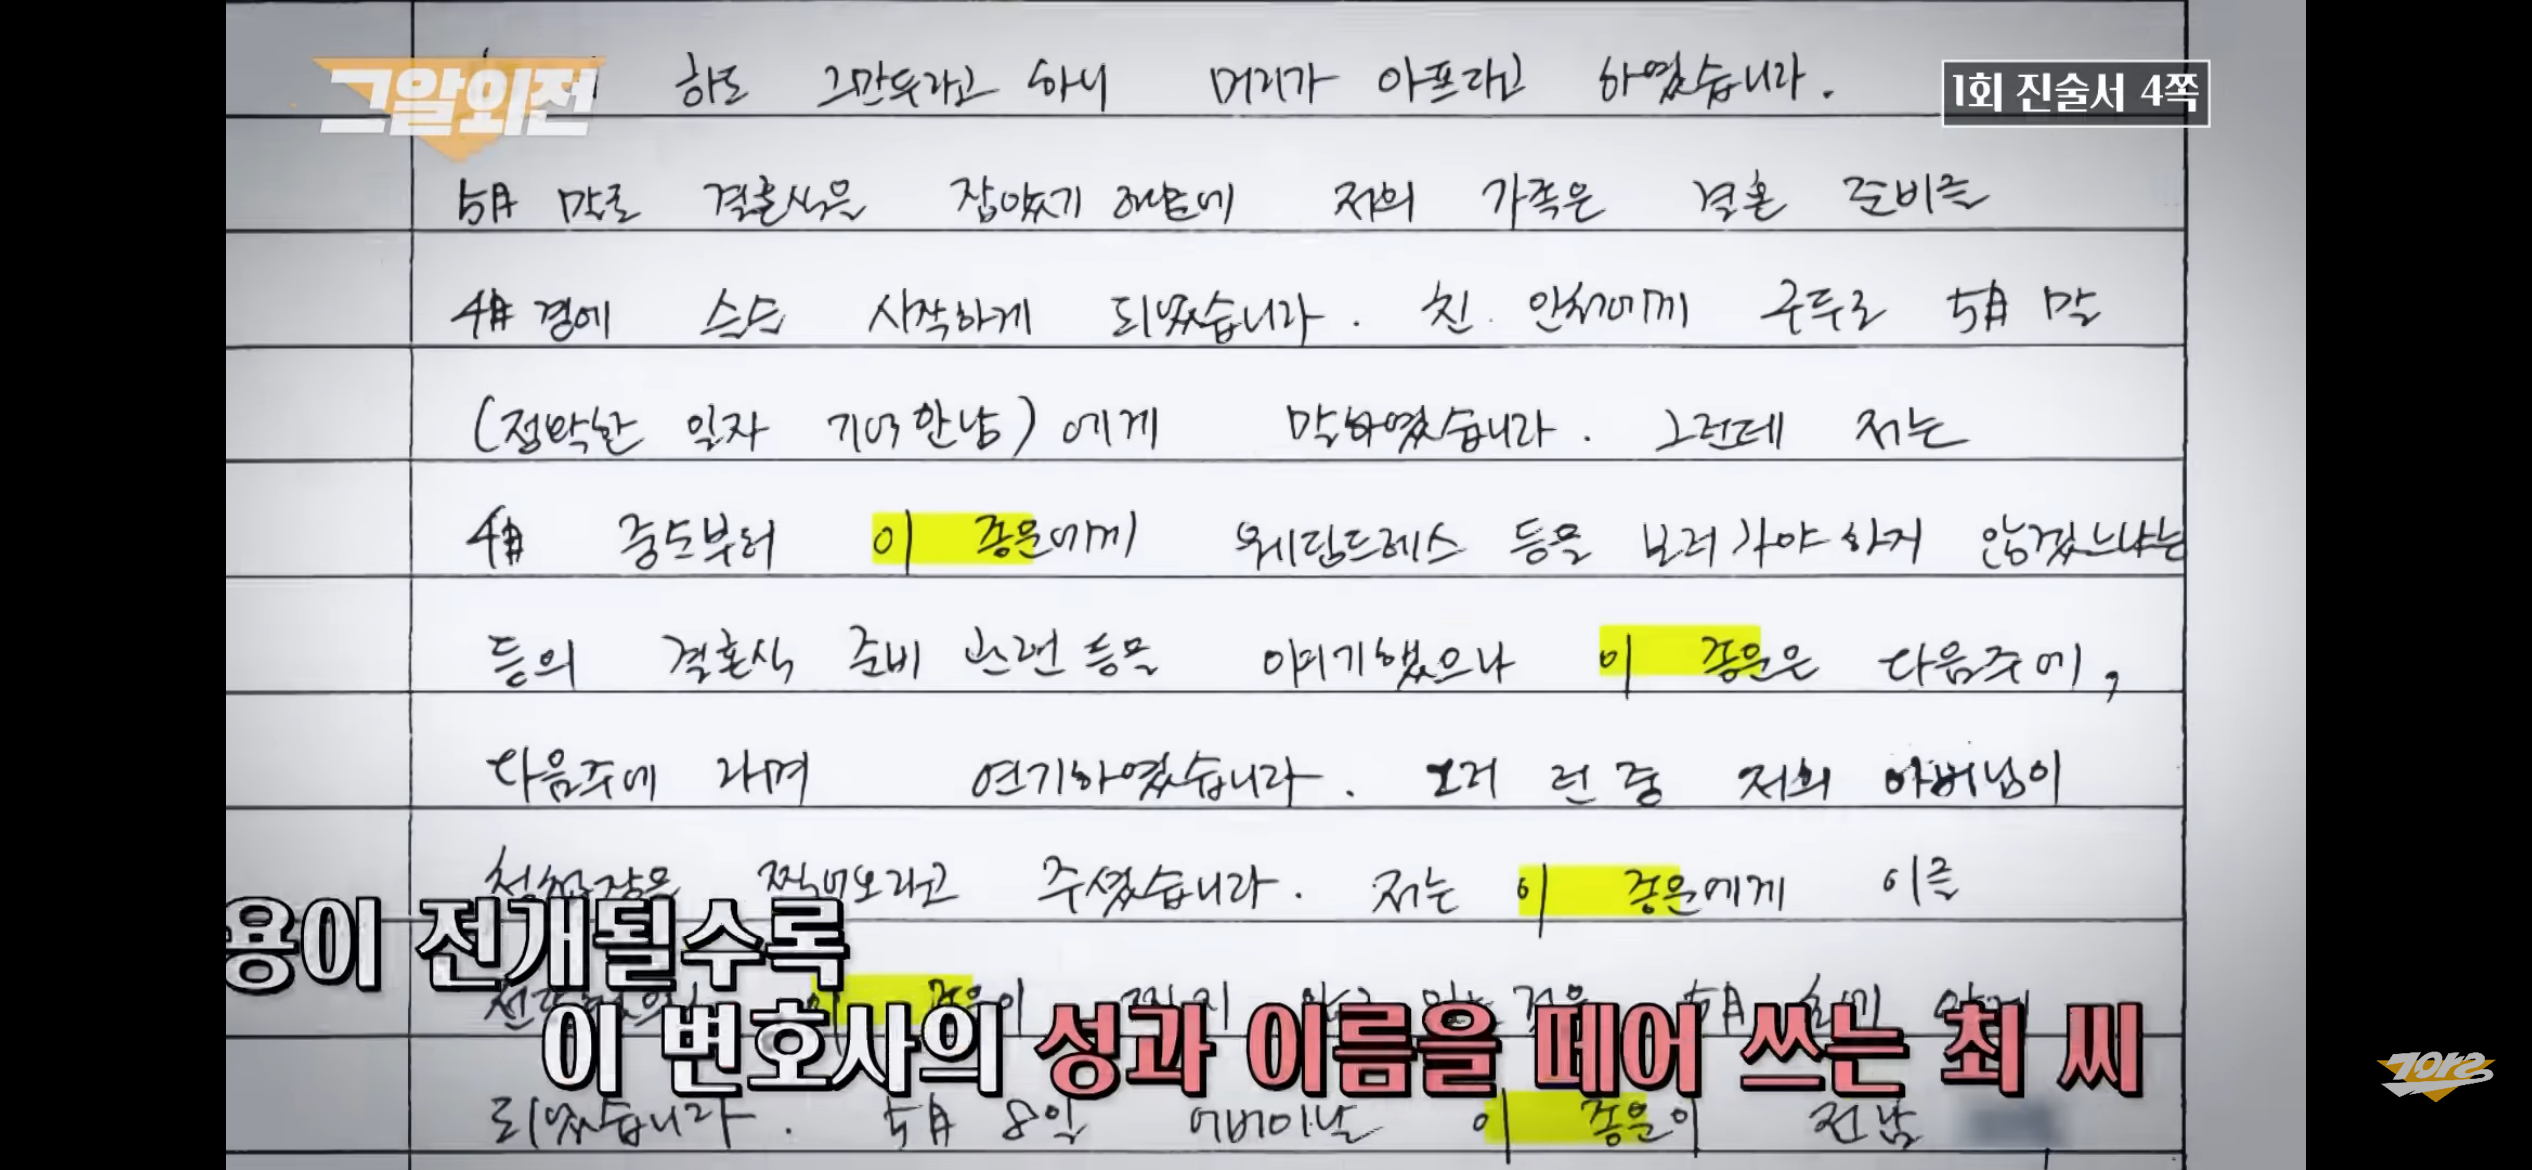 그알외전
1회 진술서 4쪽
하도 그만두라고 하니 머리가 아프라고 하였습니다.
5月 말로 결혼식을 잡았기 때문에 저의 가족은 결혼 준비를
4月경에 스스 시작하게 되었습니다. 친 인척에께 구두로 5月 말
(정확한 일자 기억안남)에게 말하였습니다. 그런데 저는
4月 중도부터 이 종운에께 웨딩드레스 등을 보러가야 하지 않겠느냐는
등의 결혼식 준비 관련등을 이야기했으나 이 종운은 다음주에,
다음주에 라며 연기하였습니다. 그러 런 중 저의 아버님이
청첩장을 찍어오라고 주셨습니다. 저는 이 종운에게 이를
용이 전개될수록
이 변호사의 성과 이름을 떼어 쓰는 최 씨
되었습니다. 5月 8일 어버이날 이 종운이 전남
그알